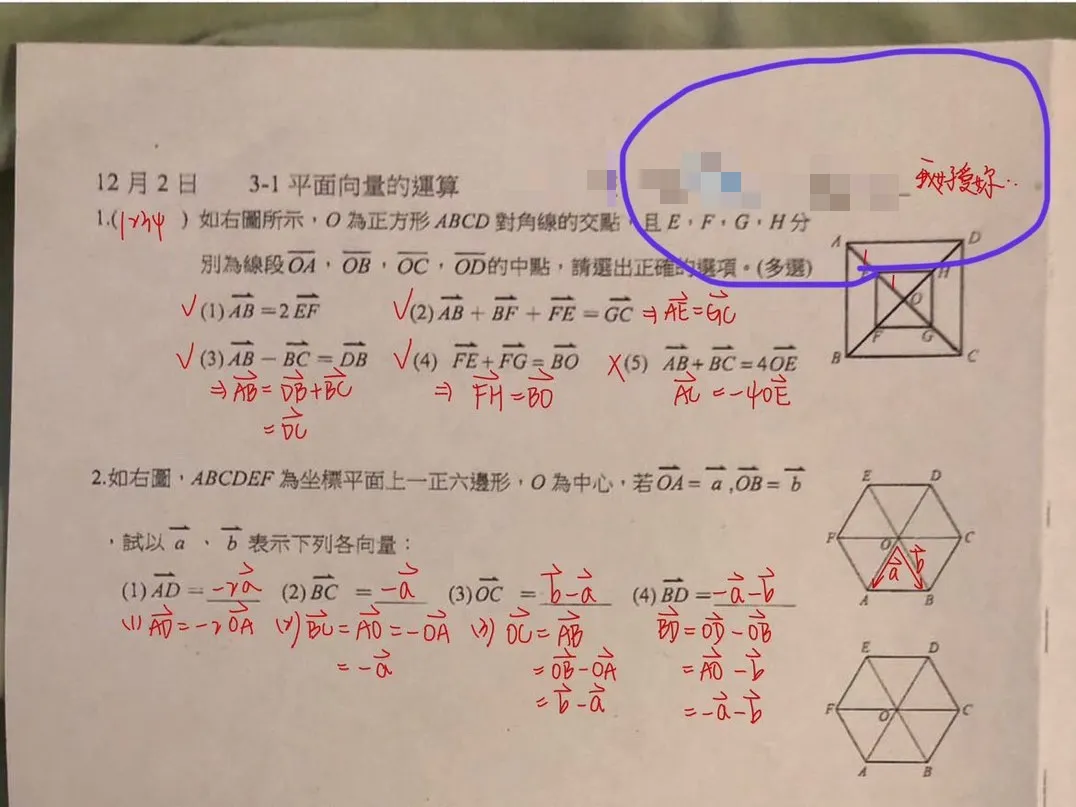 12月2日 3-1平面向量的運算 我好愛妳..
1.(1234) 如右圖所示，O為正方形ABCD對角線的交點，且E，F，G，H分
別為線段OA，OB，OC，OD的中點，請選出正確的選項。(多選)
✓(1) AB=2EF ✓(2) AB+BF+FE=GC ⇒ AE=GC
✓(3) AB-BC=DB ✓(4) FE+FG=BO ×(5) AB+BC=4OE
⇒ AB=DB+BC ⇒ FH=BO AC=-4OE
=DC
A D
1
E H
1 O
F G
B C
2.如右圖，ABCDEF為坐標平面上一正六邊形，O為中心，若OA=a,OB=b
，試以a、b表示下列各向量：
(1) AD=-2a (2) BC=-a (3) OC=b-a (4) BD=-a-b
(1) AD=-2OA (2) BC=AO=-OA (3) OC=AB BD=OD-OB
=-a =OB-OA =AO-b
=b-a =-a-b
E D
F O C
a b
A B
E D
F O C
A B